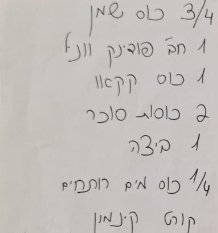 3/4 כוס שמן
1 חב' פודינק ווניל
1 כוס קקאו
2 כוסות סוכר
1 ביצה
1/4 כוס מים רותחים
קורט קינמון